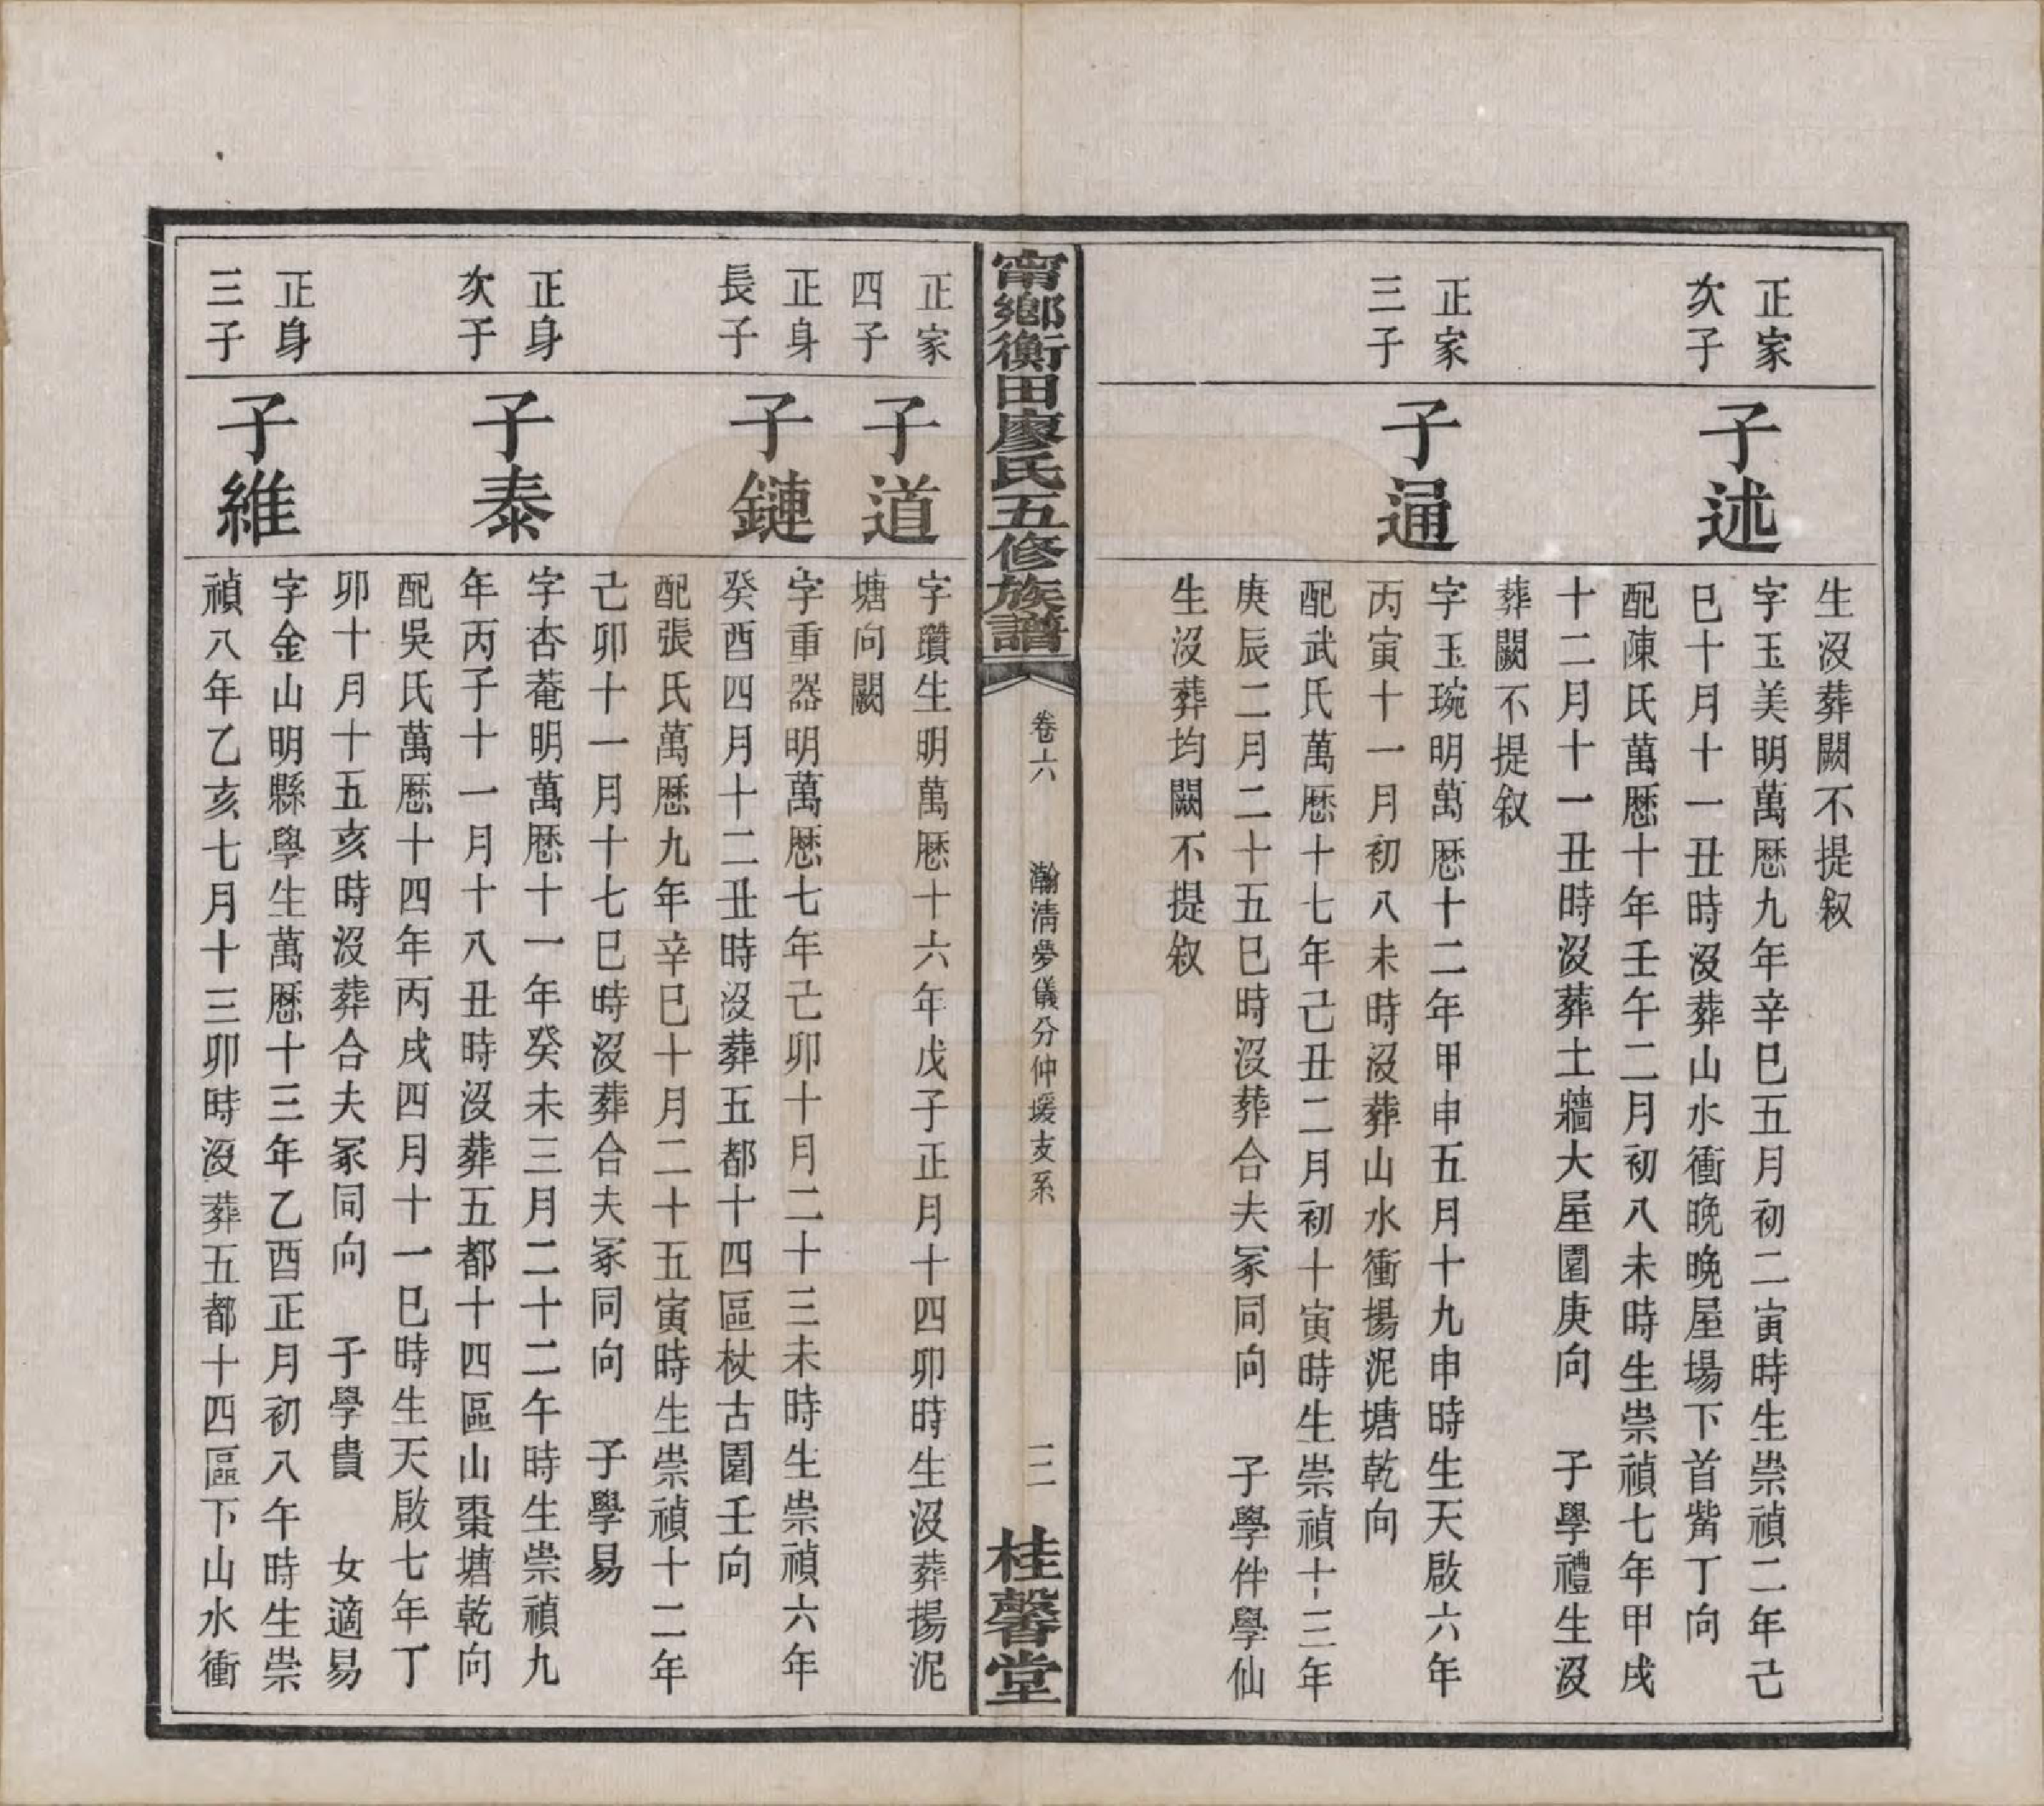 生沒葬闕不提敘
正家
次子
子述
字玉美明萬歷九年辛巳五月初二寅時生崇禎二年己
巳十月十一丑時沒葬山水衝晚晚屋場下首觜丁向
配陳氏萬歷十年壬午二月初八未時生崇禎七年甲戌
十二月十一丑時沒葬土牆大屋園庚向 子學禮生沒
葬闕不提敘
正家
三子
子通
字玉琬明萬歷十二年甲申五月十九申時生天啟六年
丙寅十一月初八未時沒葬山水衝揚泥塘乾向
配武氏萬歷十七年己丑二月初十寅時生崇禎十三年
庚辰二月二十五巳時沒葬合夫冢同向 子學件學仙
生沒葬均闕不提敘
甯鄉衡田廖氏五修族譜
卷六 瀚淸夢儀分仲堫支系
二 桂馨堂
正家
四子
子道
字瓚生明萬歷十六年戊子正月十四卯時生沒葬揚泥
塘向闕
正身
長子
子鏈
字重器明萬歷七年己卯十月二十三未時生崇禎六年
癸酉四月十二丑時沒葬五都十四區杖古園壬向
配張氏萬歷九年辛巳十月二十五寅時生崇禎十二年
己卯十一月十七巳時沒葬合夫冢同向 子學易
正身
次子
子泰
字杏菴明萬歷十一年癸未三月二十二午時生崇禎九
年丙子十一月十八丑時沒葬五都十四區山棗塘乾向
配吳氏萬歷十四年丙戌四月十一巳時生天啟七年丁
卯十月十五亥時沒葬合夫冢同向 子學貴 女適易
正身
三子
子維
字金山明縣學生萬歷十三年乙酉正月初八午時生崇
禎八年乙亥七月十三卯時沒葬五都十四區下山水衝